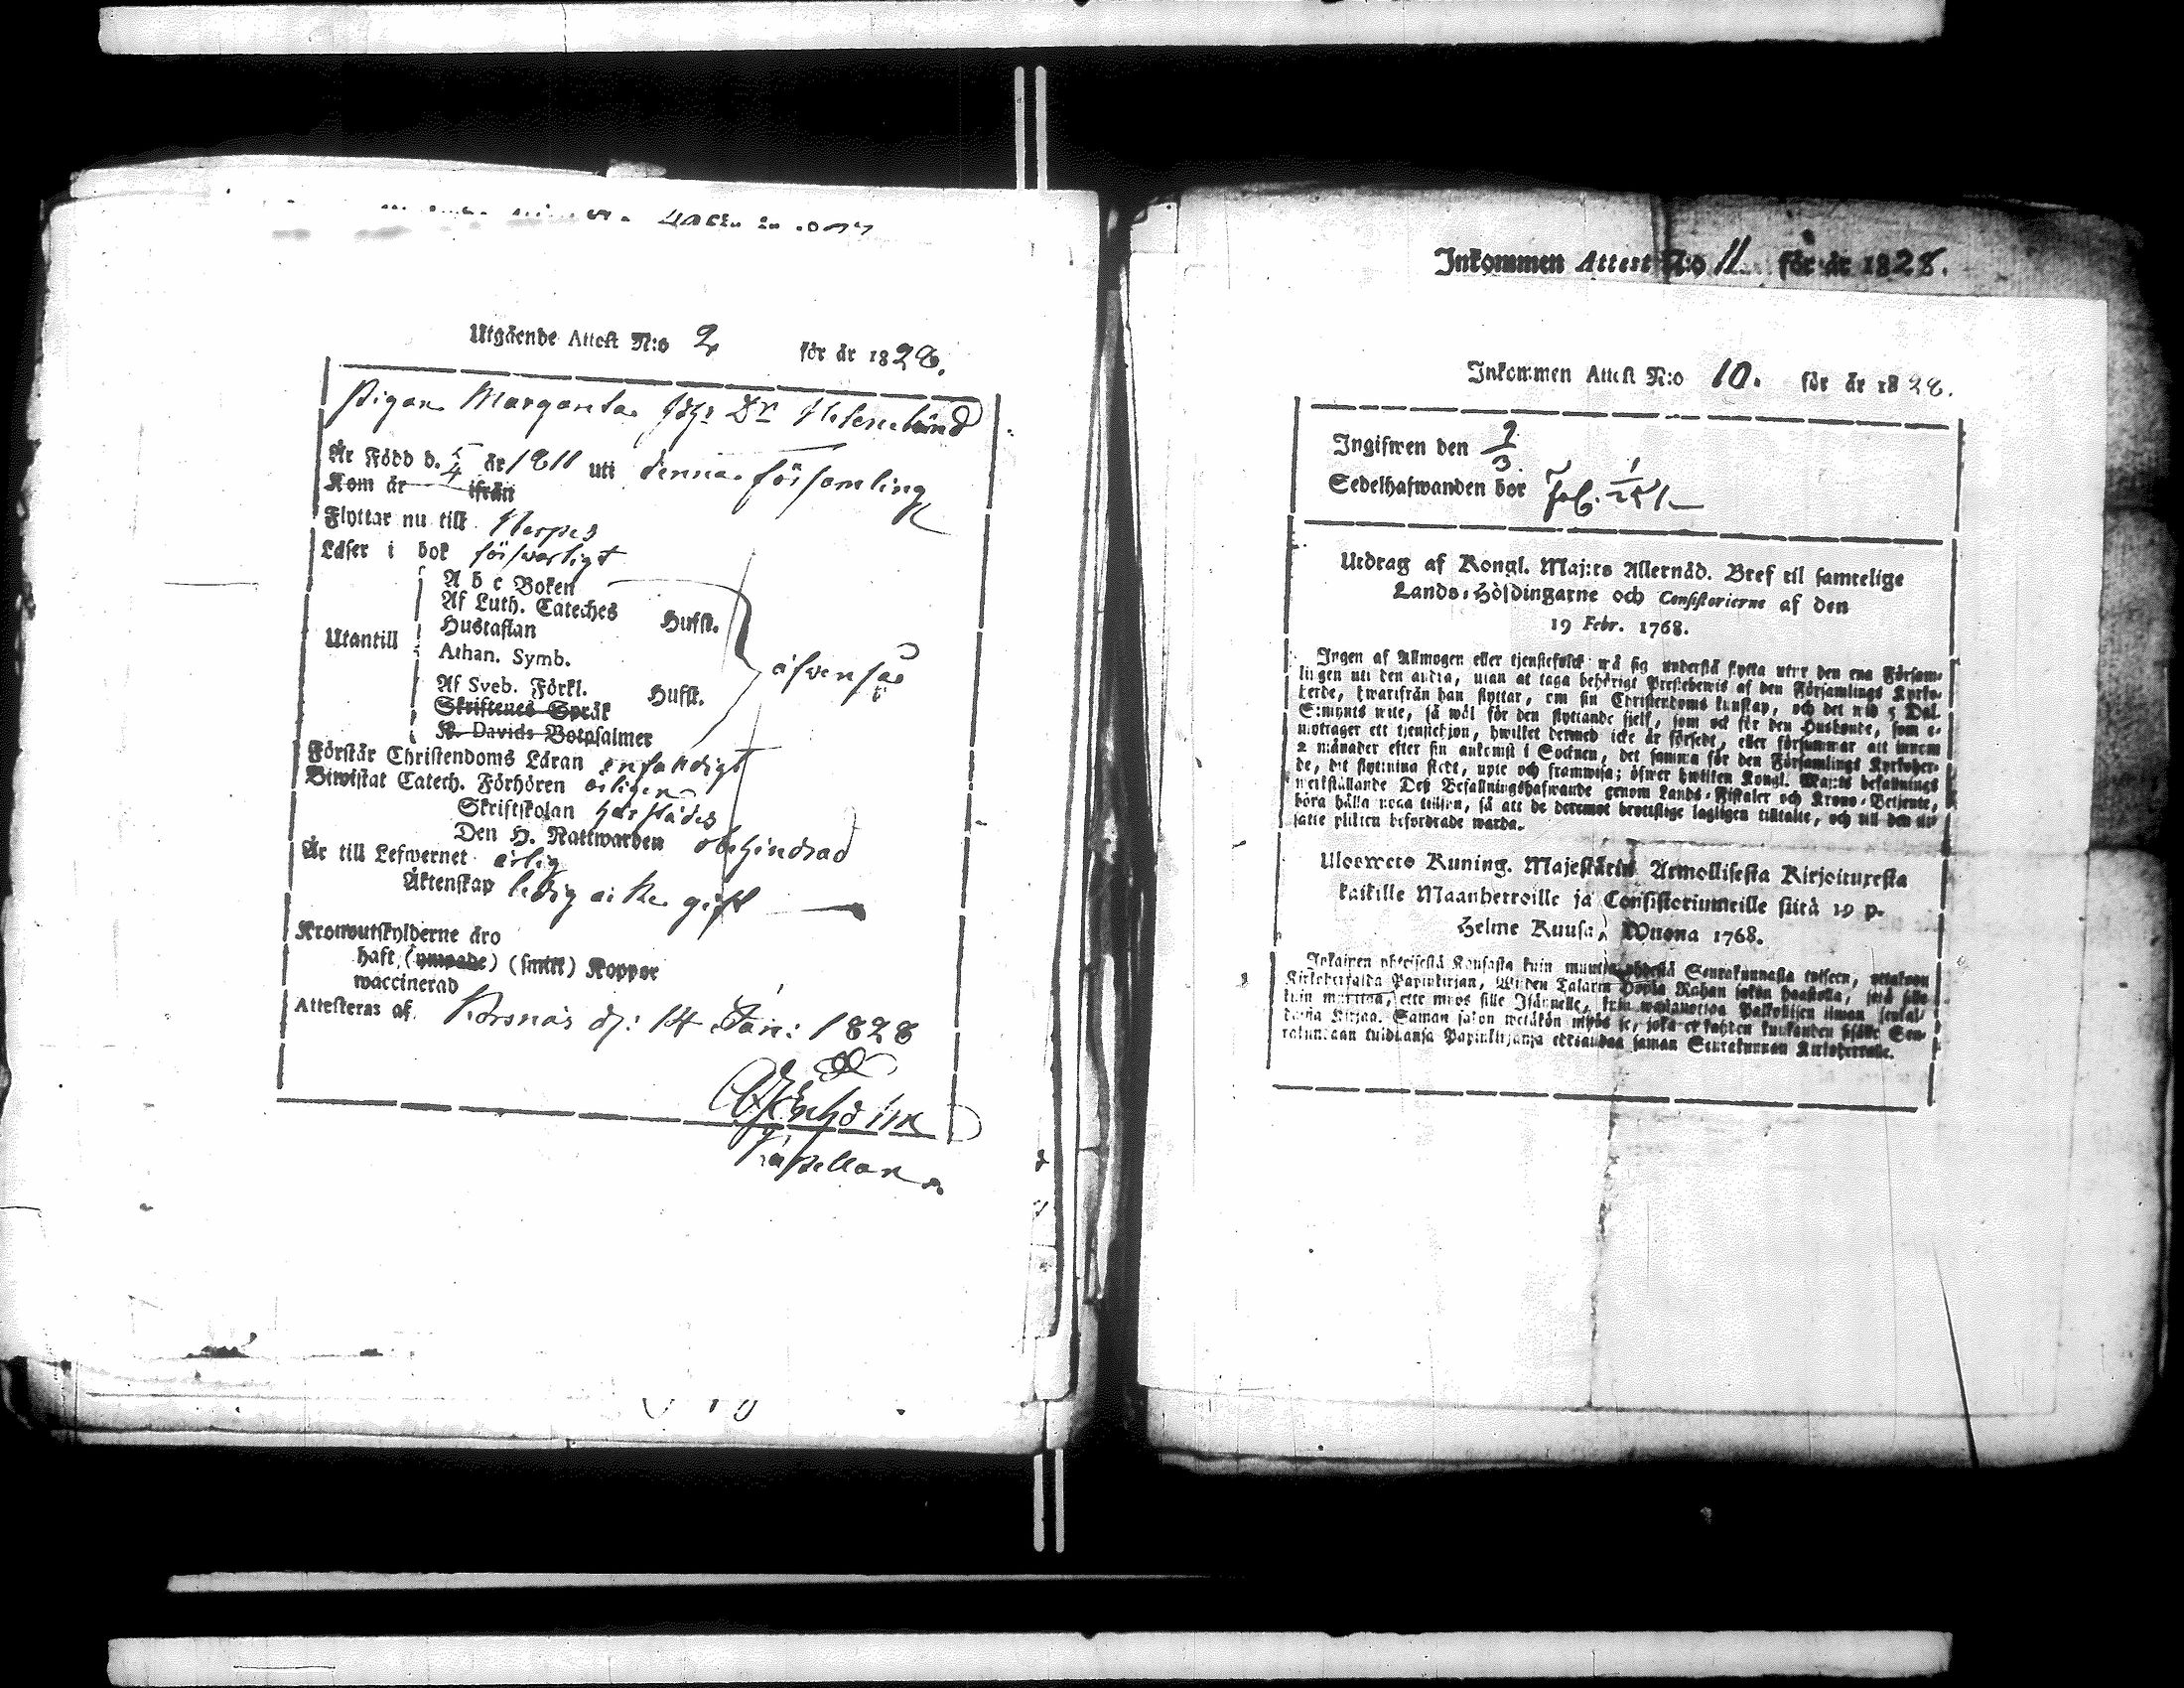 Utgående Attest N:o 2 för år 1828.
Pigan Margareta Joh: Dr Helenelund
Är Född d. 5/4 år 1811 uti denna församling
Kom år ifrån
Flyttar nu till Nerpes
Läser i bok försvarligt
Utantill
A b c Boken
Af Luth. Cateches Hufst.
Hustaflan
Athan. Symb.
Af Sveb. Förkl. Hufst.
äfven så
Skriftenes Språk
K. Davids Botpsalmer
Förstår Christendoms Läran enfaldigt
Biwistat Catech. Förhören årligen
Skriftskolan härstädes
Den H. Nattwarden obehindrad
Är till Lefwernet ärlig
Äktenskap ledig icke gift
Kronoutskylderne äro
haft (ympade) (smitt) Koppor
waccinerad
Attesteras af Korsnäs d: 14 Jan: 1828
Kapellan
Inkommen Attest N:o 11 för år 1828.
Inkommen Attest N:o 10. för år 1828.
Ingifwen den 9/3
Sedelhafwanden bor Fol.
Utdrag af Kongl. Maj:ts Allernåd. Bref til samtelige
Lands-Höfdingarne och Consistorierne af den
19 Febr. 1768.
Ingen af Allmogen eller tjenstefolck må sig understå flytta utur den ena Försam-
lingen uti den andra, utan at taga behörigt Prestebewis af den Församlings Kyrko-
herde, hwarifrån han flyttar, om sin Christendoms kunskap, och det wid 5 Dal.
S:mynts wite, så wäl för den flyttande sjelf, som ock för den Husbonde, som e-
mottager ett tjenstehjon, hwilket dermed icke är försedt, eller försummar att innom
2 månader efter sin ankomst i Socknen, det samma för den Församlings Kyrkoher-
de, dit flyttning skedt, upte och framwisa; öfwer hwilken Kongl. Maj:ts befallnings
werkställande Deß Befallningshafwande genom Lands-Fiskaler och Krono-Betjente,
böra hålla noga tillsyn, så att de deremot brottslige lagligen tilltalte, och till den ut-
satte plikten befordrade warda.
Ulosweto Kuning. Majestätin Armollisesta Kirjoituxesta
kaikille Maanherroille ja Consistoriumeille siitä 19 p.
Helme Kuusa, Wuona 1768.